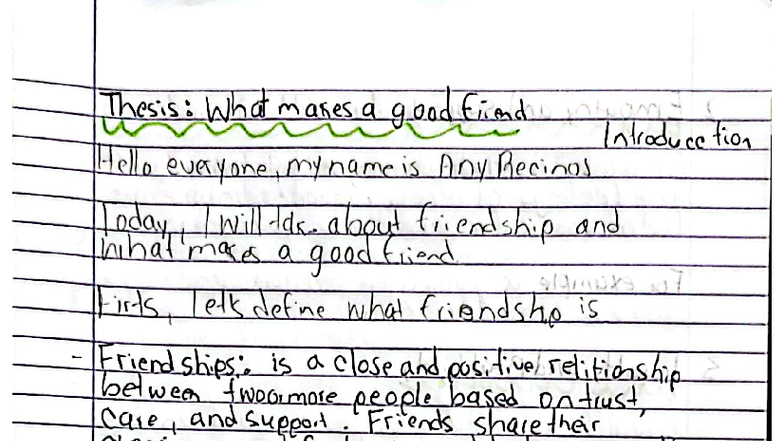 Thesis: What makes a good friend
Introduccetion
Hello everyone, my name is Any Recinos
Today, I will talk. about friendship and
what makes a good friend
Firts, let's define what friendship is
- Friendships: is a close and positive relitionship
between two or more people based on trust,
care, and support. Friends share their